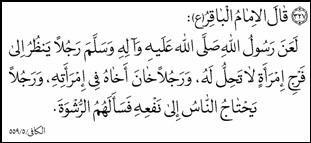 ﴿٢٢٦﴾ قَالَ الإِمَامُ الْبَاقِرُ(ع):
لَعَنَ رَسُولُ اللهِ صَلَّى اللهُ عَلَيْهِ وَآلِهِ وَسَلَّمَ رَجُلاً يَنْظُرُ إِلَى
فَرْجِ امْرَأَةٍ لاَ تَحِلُّ لَهُ، وَرَجُلاً خَانَ أَخَاهُ فِي امْرَأَتِهِ، وَرَجُلاً
يَحْتَاجُ النَّاسُ إِلَى نَفْعِهِ فَسَأَلَهُمُ الرُّشْوَةَ.
الكافي/٥/٥٥٩